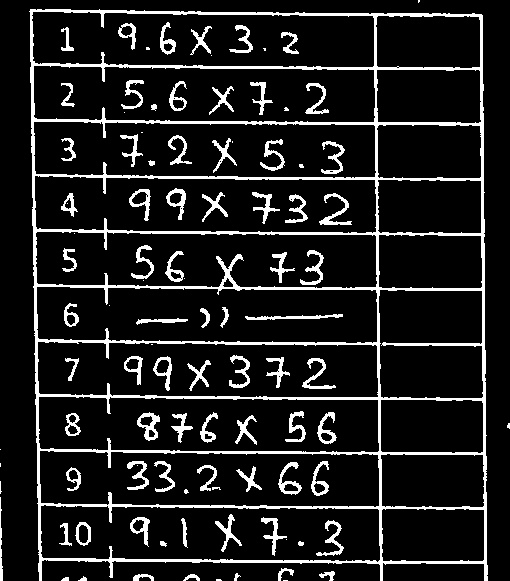 1 9.6 X 3.2
2 5.6 X 7.2
3 7.2 X 5.3
4 99 X 732
5 56 X 73
6 —,,—
7 99 X 372
8 876 X 56
9 33.2 X 66
10 9.1 X 7.3